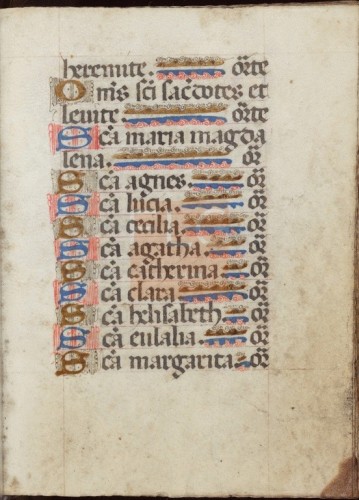 heremite. or̃te
Om̃s sc̃i sac̃dotes et
leuite. or̃te
Sc̃a maria magda
lena. or̃
Sc̃a agnes. or̃
Sc̃a lucia. or̃
Sc̃a cecilia. or̃
Sc̃a agatha. or̃
Sc̃a catherina. or̃
Sc̃a clara. or̃
Sc̃a helisabeth. or̃
Sc̃a eulalia. or̃
Sc̃a margarita. or̃